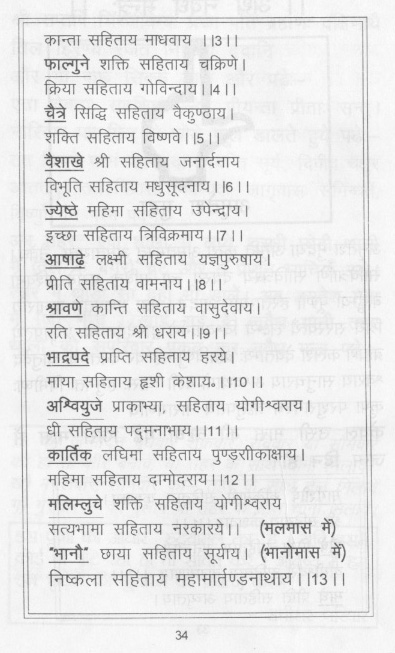 कान्ता सहिताय माधवाय ।।3।।
फाल्गुने शक्ति सहिताय चक्रिणे।
क्रिया सहिताय गोविन्दाय।।4।।
चैत्रे सिद्धि सहिताय वैकुण्ठाय।
शक्ति सहिताय विष्णवे।।5।।
वैशाखे श्री सहिताय जनार्दनाय
विभूति सहिताय मधुसूदनाय।।6।।
ज्येष्ठे महिमा सहिताय उपेन्द्राय।
इच्छा सहिताय त्रिविक्रमाय।।7।।
आषाढ़े लक्ष्मी सहिताय यज्ञपुरुषाय।
प्रीति सहिताय वामनाय।।8।।
श्रावणे कान्ति सहिताय वासुदेवाय।
रति सहिताय श्री धराय।।9।।
भाद्रपदे प्राप्ति सहिताय हरये।
माया सहिताय हृशी केशाय.।।10।।
अश्वियुजे प्राकाभ्या, सहिताय योगीश्वराय।
धी सहिताय पद्मनाभाय।।11।।
कार्तिक लघिमा सहिताय पुण्डरीकाक्षाय।
महिमा सहिताय दामोदराय।।12।।
मलिम्लुचे शक्ति सहिताय योगीश्वराय
सत्यभामा सहिताय नरकारये। (मलमास में)
"भानौ" छाया सहिताय सूर्याय। (भानोमास में)
निष्कला सहिताय महामार्तण्डनाथाय।।13।।
34